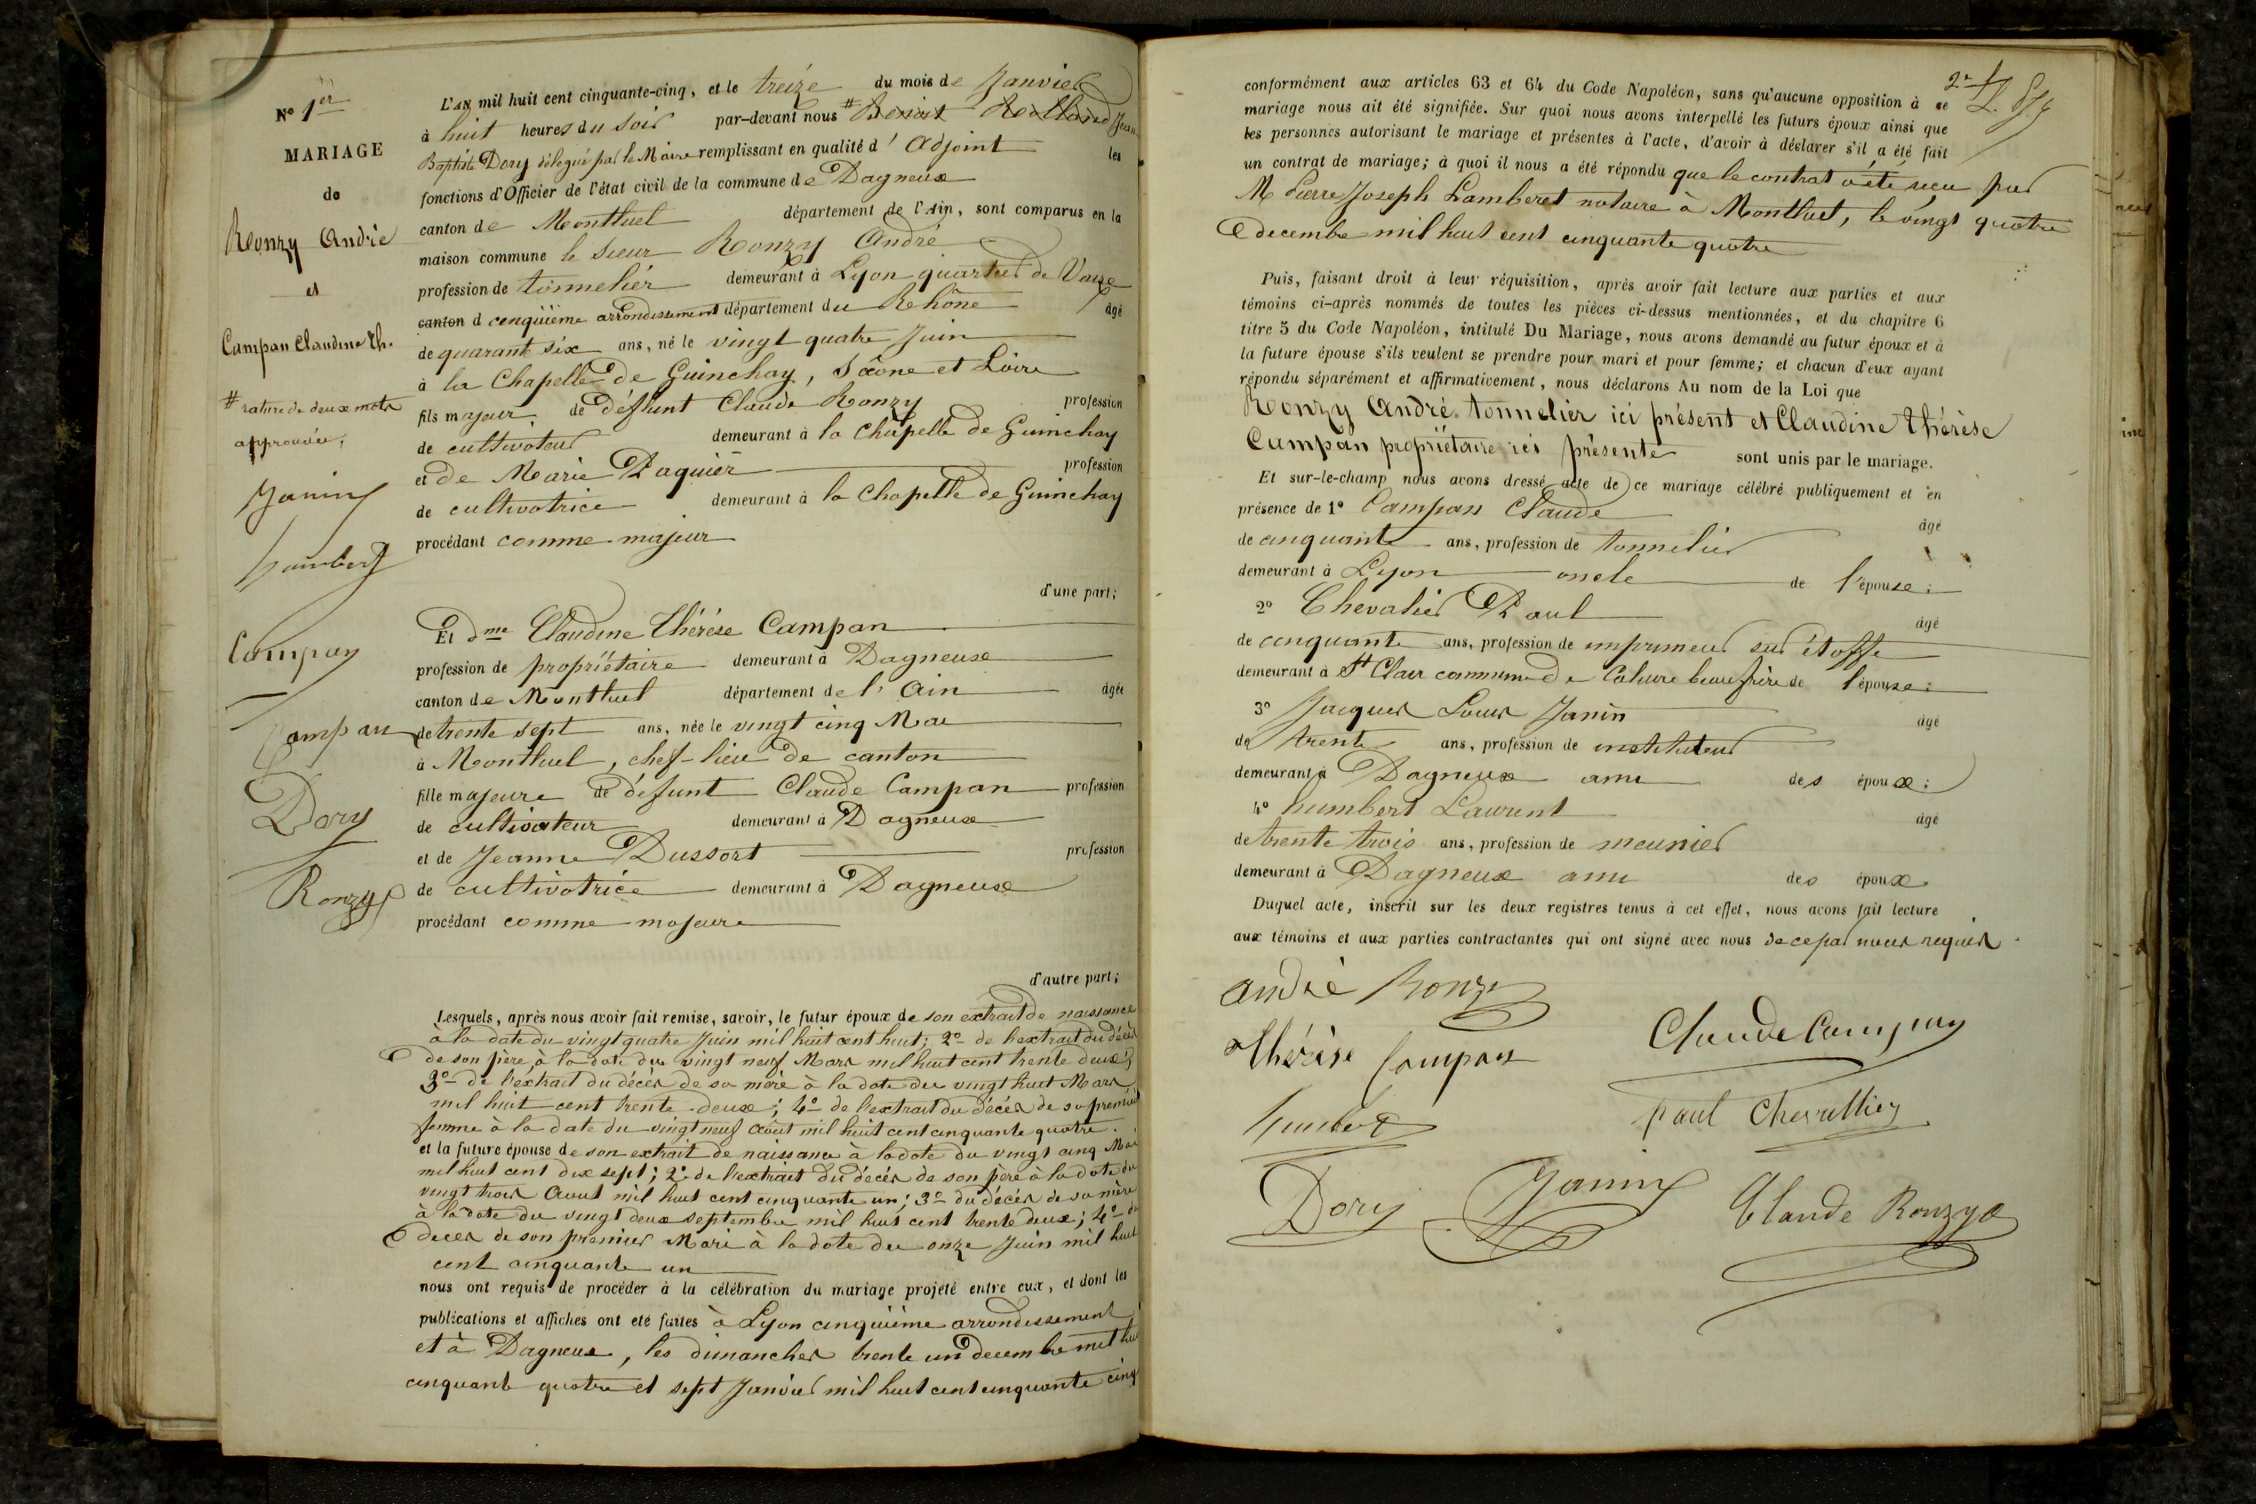 N° 1er
MARIAGE
de
Ronzy André
et
Campan Claudine Th.
# rature de deux mots
approuvée.
Janin
humbert
Campan
Campan
Dory
Ronzy
L'an mil huit cent cinquante-cinq, et le treize du mois de Janvier
à huit heures du soir par-devant nous # Jean
Baptiste Dory délégué par le Maire remplissant en qualité d'Adjoint les
fonctions d'Officier de l'état civil de la commune de Dagneux
canton de Montluel département de l'Ain, sont comparus en la
maison commune le sieur Ronzy André
profession de tonnelier demeurant à Lyon quartier de Vaise
canton d cinquième arrondissement département du Rhône âgé
de quarante six ans, né le vingt quatre Juin
à la Chapelle de Guinchay, Saône et Loire
fils majeur de défunt Claude Ronzy profession
de cultivateur demeurant à la Chapelle de Guinchay
et de Marie Daquier profession
de cultivatrice demeurant à la Chapelle de Guinchay
procédant comme majeur
d'une part;
Et dme Claudine Thérèse Campan
profession de propriétaire demeurant à Dagneux
canton de Montluel département de l'Ain âgée
de trente sept ans, née le vingt cinq Mai
à Montluel, chef-lieu de canton
fille majeure de défunt Claude Campan profession
de cultivateur demeurant à Dagneux
et de Jeanne Dussort profession
de cultivatrice demeurant à Dagneux
procédant comme majeure
d'autre part;
Lesquels, après nous avoir fait remise, savoir, le futur époux de son extrait de naissance
à la date du vingt quatre Juin mil huit cent huit; 2° de l'extrait du décès
de son père, à la date du vingt neuf Mars mil huit cent trente deux;
3° de l'extrait du décès de sa mère à la date du vingt huit Mars
mil huit cent trente deux; 4° de l'extrait du décès de sa première
femme à la date du vingt neuf Août mil huit cent cinquante quatre.
et la future épouse de son extrait de naissance à la date du vingt cinq Mai
mil huit cent dix sept; 2° de l'extrait du décès de son père à la date du
vingt trois Aout mil huit cent cinquante un; 3° du décès de sa mère
à la date du vingt deux septembre mil huit cent trente deux; 4° du
décès de son premier Mari à la date du onze Juin mil huit
cent cinquante un
nous ont requis de procéder à la célébration du mariage projeté entre eux, et dont les
publications et affiches ont été faites à Lyon cinquième arrondissement
et à Dagneux, les dimanches trente un decembre mil huit
cinquante quatre et sept Janvier mil huit cent cinquante cinq
conformément aux articles 63 et 64 du Code Napoléon, sans qu'aucune opposition à ce
mariage nous ait été signifiée. Sur quoi nous avons interpellé les futurs époux ainsi que
les personnes autorisant le mariage et présentes à l'acte, d'avoir à déclarer s'il a été fait
un contrat de mariage; à quoi il nous a été répondu que le contrat a été reçu par
M Pierre Joseph Lamberet notaire à Montluel, le vingt quatre
decembre mil huit cent cinquante quatre
Puis, faisant droit à leur réquisition, après avoir fait lecture aux parties et aux
témoins ci-après nommés de toutes les pièces ci-dessus mentionnées, et du chapitre 6
titre 5 du Code Napoléon, intitulé Du Mariage, nous avons demandé au futur époux et à
la future épouse s'ils veulent se prendre pour mari et pour femme; et chacun d'eux ayant
répondu séparément et affirmativement, nous déclarons Au nom de la Loi que
Ronzy André tonnelier ici présent et Claudine Thérèse
Campan propriétaire ici présente sont unis par le mariage.
Et sur-le-champ nous avons dressé acte de ce mariage célébré publiquement et en
présence de 1° Campan Claude âgé
de cinquante ans, profession de tonnelier
demeurant à Lyon oncle de l'épouse;
2° Chevalier Paul âgé
de cinquante ans, profession de imprimeur sur étoffe
demeurant à St Clair commune de Caluire beau frère de l'épouse;
3° Jacques Louis Janin âgé
de trente ans, profession de instituteur
demeurant à Dagneux ami des époux;
4° humbert Laurent âgé
de trente trois ans, profession de meunier
demeurant à Dagneux ami des époux
Duquel acte, inscrit sur les deux registres tenus à cet effet, nous avons fait lecture
aux témoins et aux parties contractantes qui ont signé avec nous de ce par nous requis.
André Ronzy
Thérèse Campan
Claude Campan
humbert
paul Chevallier
Dory
Janin
Claude Ronzy